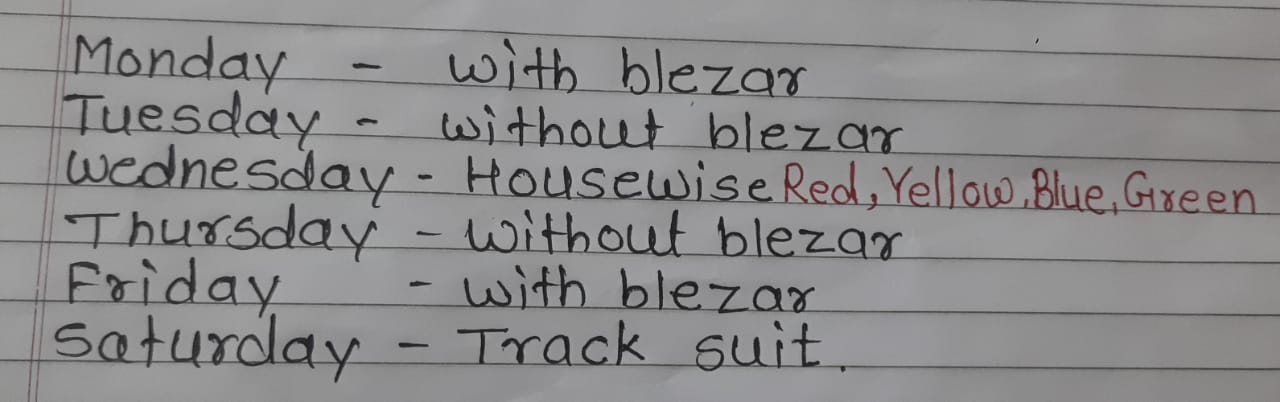 Monday - with blezar
Tuesday - without blezar
Wednesday - Housewise Red, Yellow, Blue, Green
Thursday - without blezar
Friday - with blezar
Saturday - Track suit.